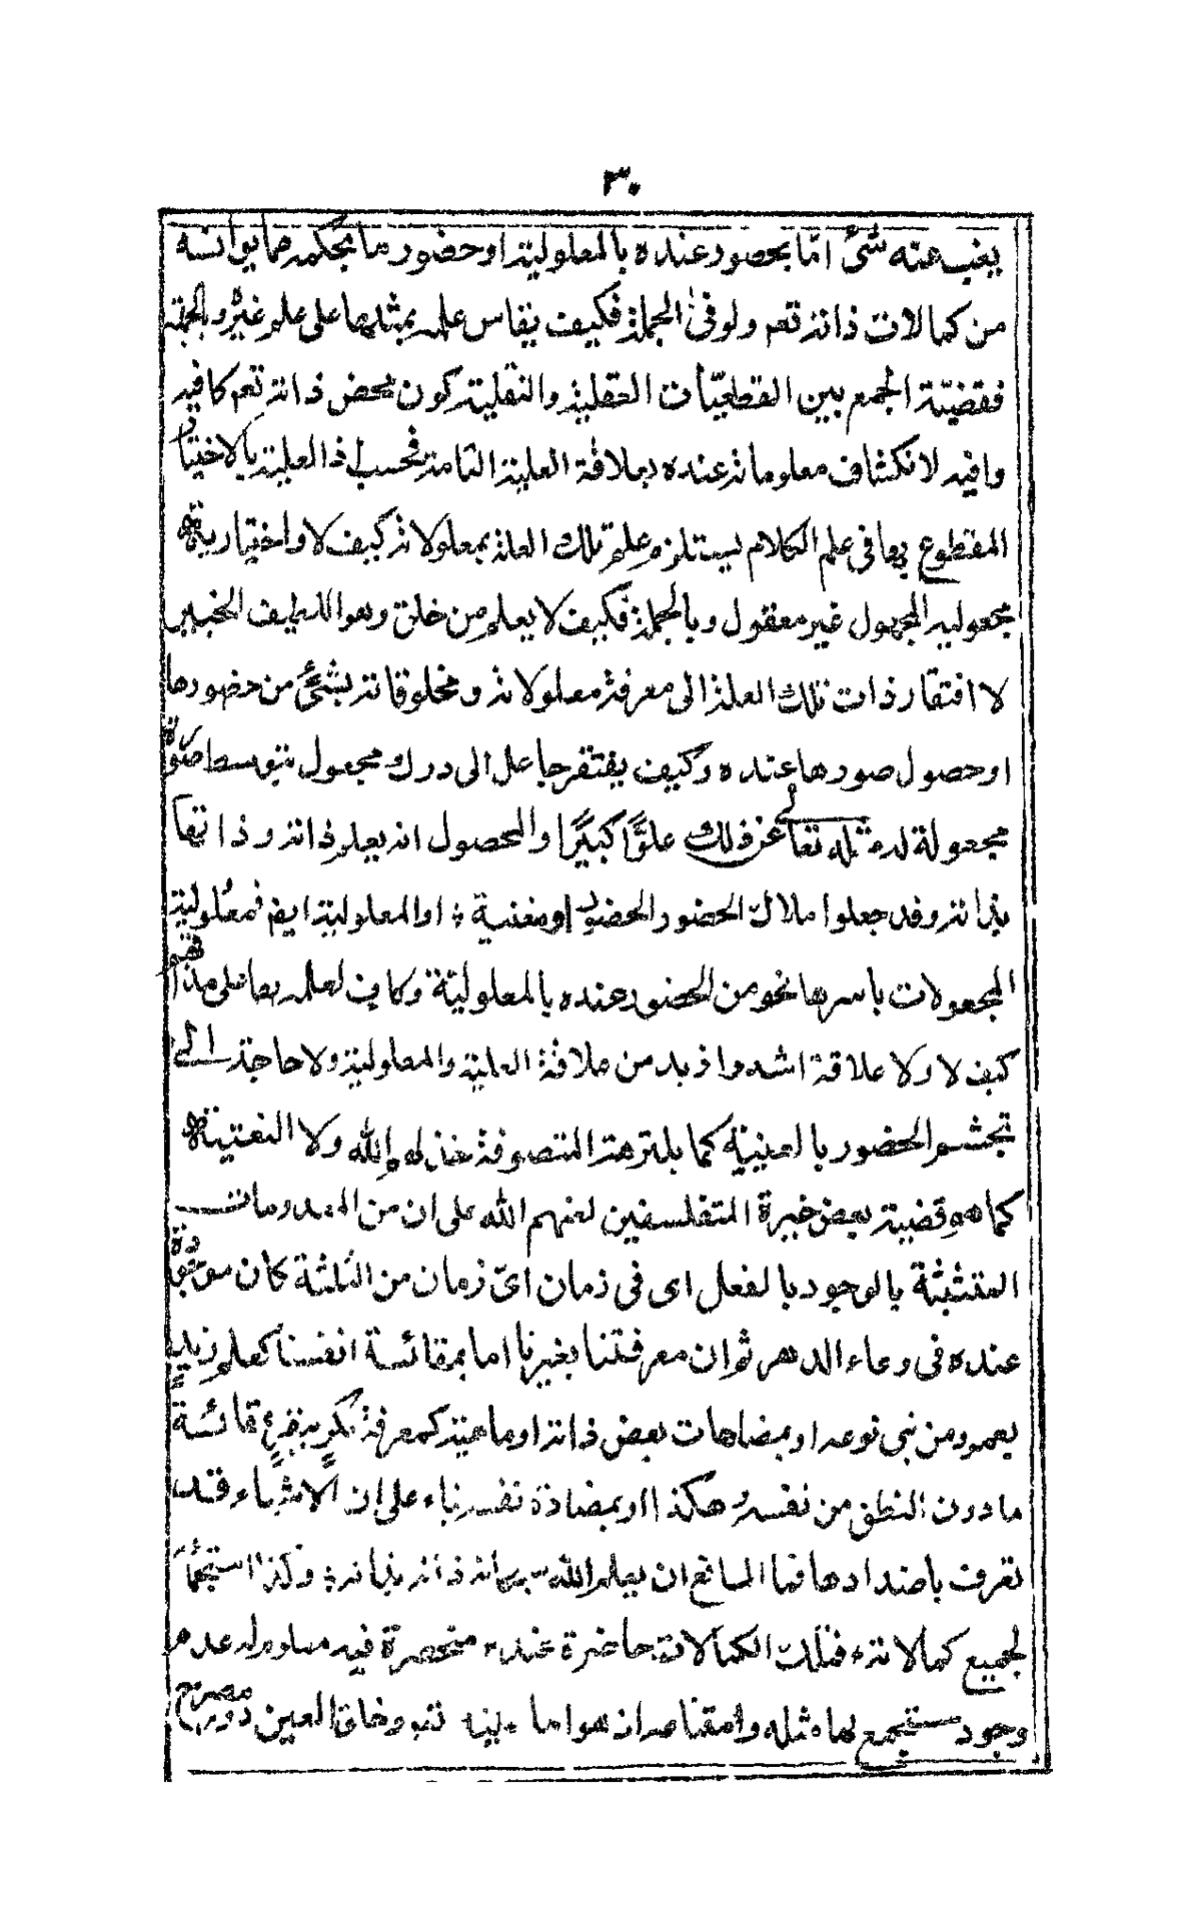 ٣٠
يغب عنه شئ امّا بحضور عنده بالمعلولية او حضور ما يحكمه مما يوانسه
من كمالات ذاته تعم ولو فى الجملة فكيف يقاس علمه بمثلها على علم غيره وبالجملة
فقضيّة الجمع بين القطعيّات العقلية والنقلية كون محض ذاته تعم كافيه
وافيه لانكشاف معلوماته عنده بعلاقة العلية التامة فحسب اذ العلية بالاختيار
المقطوع بها فى علم الكلام يستلزم علم تلك العلة بمعلولاته كيف لا واختيارية
مجعوليه المجهول غير معقول وبالجملة فكيف لا يعلم من خلق وهو اللطيف الخبير
لا افتقار ذات تلك العلة الى معرفة معلولاته ومخلوقاته بشئ من حضورها
او حصول صورها عنده وكيف يفتقر جاعل الى درك مجعول بتوسط صورة
مجعولة له مثله تعالى عن ذلك علوًّا كبيرًا والمحصول انه يعلم ذاته وذاتها
بذاته وقد جعلوا ملاك الحضور الحضور او مغنية او المعلولية ايضا فمعلولية
المجعولات باسرها نحو من الحضور عنده بالمعلولية وكاف لعلمه بها على هذا
كيف لا ولا علاقة اشد وازيد من علاقة العلية والمعلولية ولا حاجة الى
تجشم الحضور بالعينية كما يلتزمه المتصوفة خذلهم الله ولا النعتية
كما هو قضية بعض خبرة المتفلسفين لعنهم الله على ان من المعدومات
المتشبثة بالوجود بالفعل اى فى زمان اىّ زمان من الثلثة كان موجودة
عنده فى وعاء الدهر ثم ان معرفتنا بغيرنا اما بمقائسة انفسنا كعلم زيد
بعمرو من بنى نوعه او بمضاهات بعض ذاته او ماهيته كمعرفة بكر بفرس قائسة
ما دون النطق من نفسه وهكذا او بمضادة نفسه بناء على ان الاشياء قد
تعرف باضدادها فما المانع ان يعلم الله سبحانه ذاته بذاته وكذا استجماع
لجميع كمالاته فتلك الكمالات حاضرة عنده منحصرة فيه عدم
وجود مستجمع لها مثله خالق العين